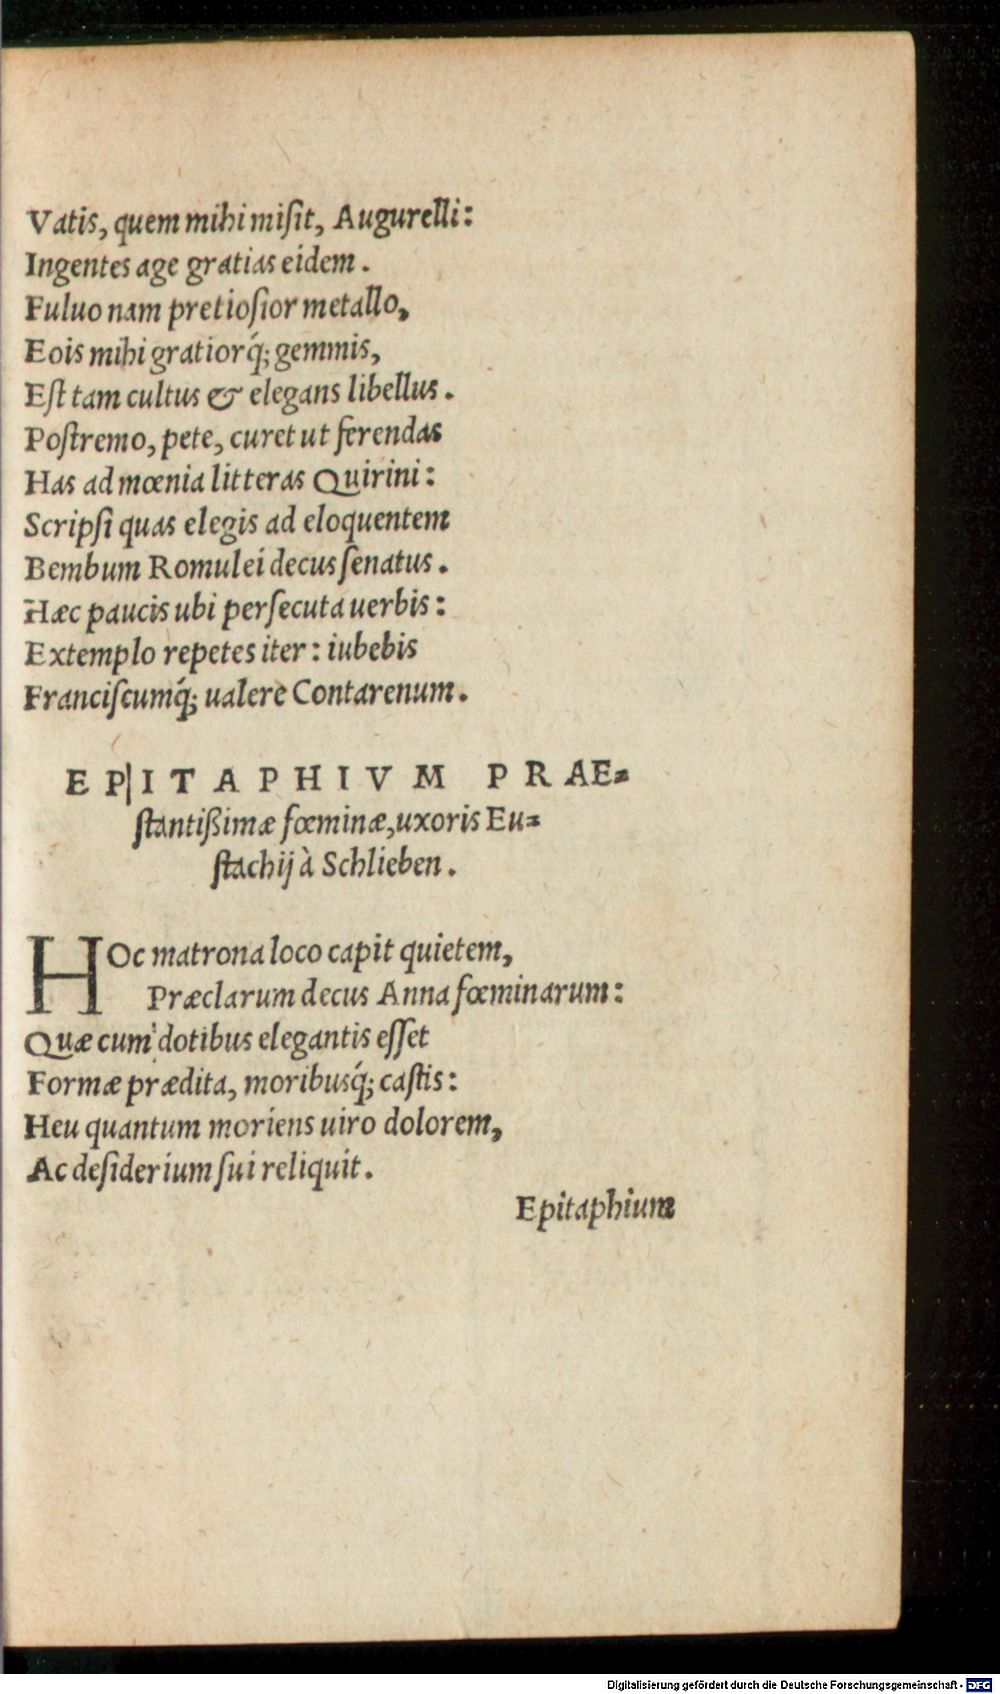 Vatis, quem mihi misit, Augurelli:
Ingentes age gratias eidem.
Fuluo nam pretiosior metallo,
Eois mihi gratiorq́; gemmis,
Est tam cultus & elegans libellus.
Postremo, pete, curet ut ferendas
Has ad mœnia litteras Quirini:
Scripsi quas elegis ad eloquentem
Bembum Romulei decus senatus.
Hæc paucis ubi persecuta uerbis:
Extemplo repetes iter: iubebis
Franciscumq́; ualere Contarenum.
EPITAPHIVM PRAE-
stantißimæ fœminæ, uxoris Eu-
stachij à Schlieben.
HOc matrona loco capit quietem,
Præclarum decus Anna fœminarum:
Quæ cum dotibus elegantis esset
Formæ prædita, moribusq́; castis:
Heu quantum moriens uiro dolorem,
Ac desiderium sui reliquit.
Epitaphium
Digitalisierung gefördert durch die Deutsche Forschungsgemeinschaft - DFG